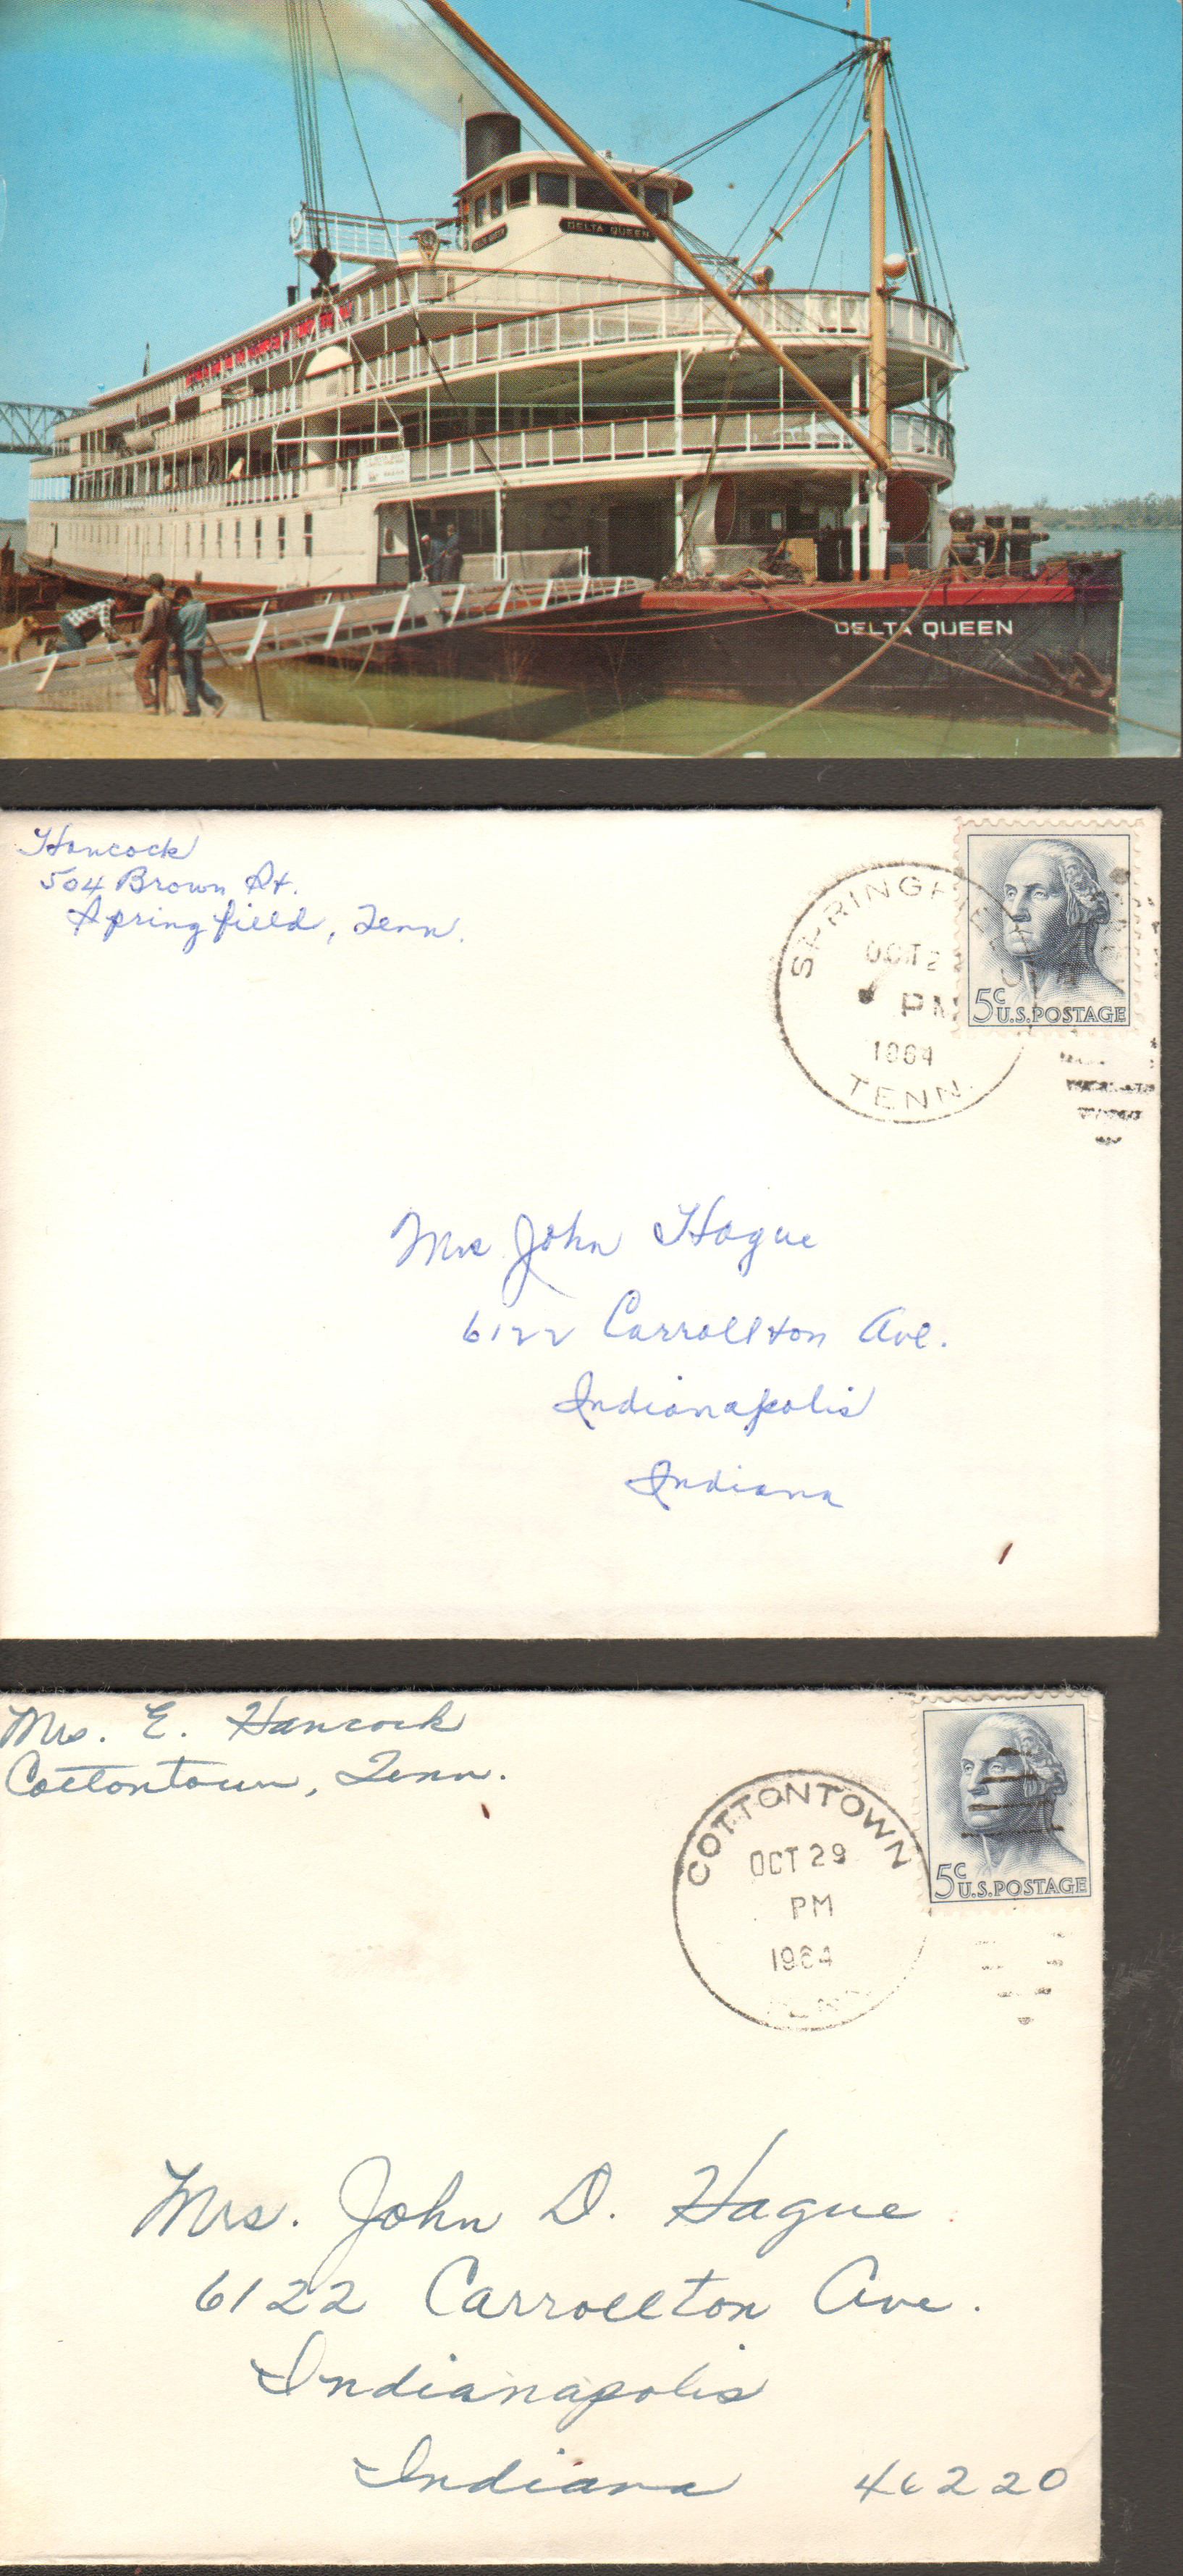 DELTA QUEEN
DELTA QUEEN
Hancock
504 Brown St.
Springfield, Tenn.
SPRINGF
OCT 2
PM
1964
TENN.
5c
U.S.POSTAGE
Mrs John Hague
6122 Carrollton Ave.
Indianapolis
Indiana
Mrs. E. Hancock
Cottontown, Tenn.
COTTONTOWN
OCT 29
PM
1964
TENN
5c
U.S.POSTAGE
Mrs. John D. Hague
6122 Carrollton Ave.
Indianapolis
Indiana 46220